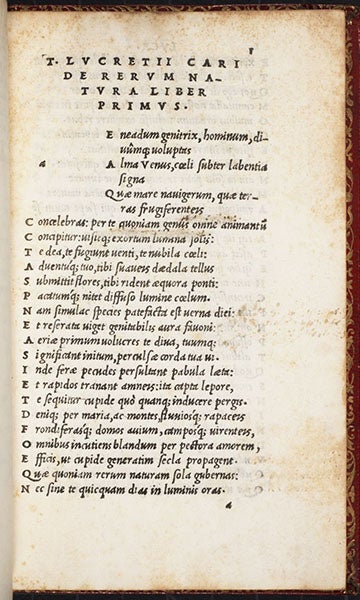 1
T. LVCRETII CARI
DE RERVM NA-
TVRA LIBER
PRIMVS.
E neadum genitrix, hominum, di-
uũmq; uoluptas
a
A lma Venus, cœli subter labentia
signa
Q uæ mare nauigerum, quæ ter-
ras frugiferenteis
C oncelebras: per te quoniam genus omne animantũ
C oncipitur: uisitq; exortum lumina solis:
T e dea, te fugiunt uenti, te nubila cœli:
A duentuq; tuo, tibi suaueis dædala tellus
S ubmittit flores, tibi rident æquora ponti:
P acatumq; nitet diffuso lumine cœlum.
N am simulac species patefacta est uerna diei:
E t reserata uiget genitabilis aura fauoni:
A eriæ primum uolucres te diua, tuumq;
S ignificant initum, perculsæ corda tua ui.
I nde feræ pecudes persultant pabula læta:
E t rapidos tranant amneis: ita capta lepore,
T e sequitur cupide quò quanq; inducere pergis.
D eniq; per maria, ac montes, fluuiosq; rapaceis
F rondiferasq; domos auium, camposq; uirenteis,
O mnibus incutiens blandum per pectora amorem,
E fficis, ut cupide generatim secla propagent.
Q uæ quoniam rerum naturam sola gubernas:
N ec sine te quicquam dias in luminis oras.
a